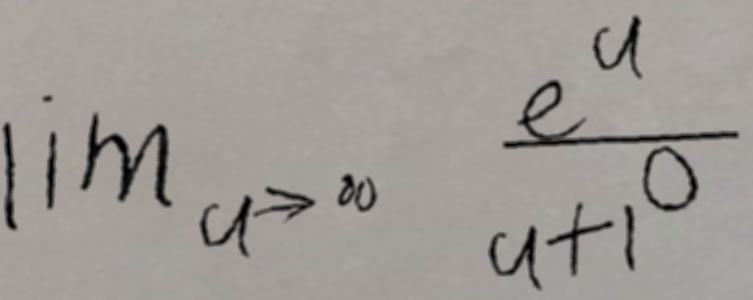 lim_{u→∞} \frac{e^u}{u+1^0}